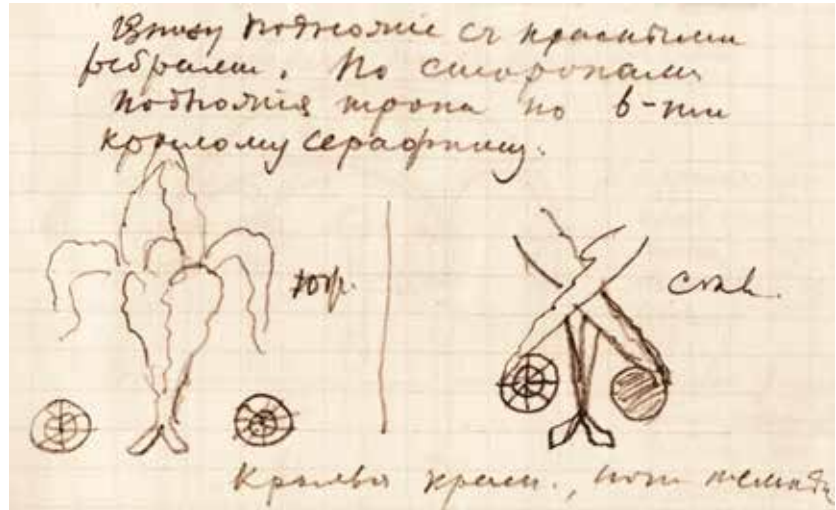 Внизу подножіе съ красными
ребрами. По сторонамъ
подножія трона по 6-ти
крылому серафиму.
юж.
сѣв.
Крылья красн.,